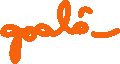 goalô